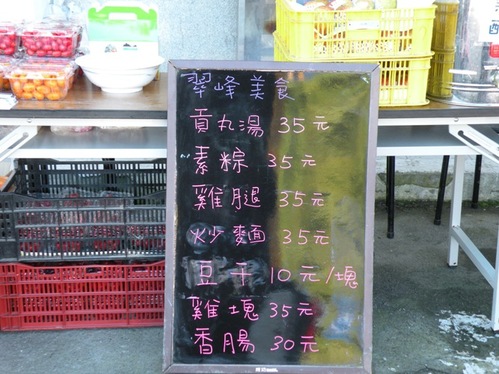 翠峰美食
貢丸湯 35元
素粽 35元
雞腿 35元
炒麵 35元
豆干 10元/塊
雞塊 35元
香腸 30元